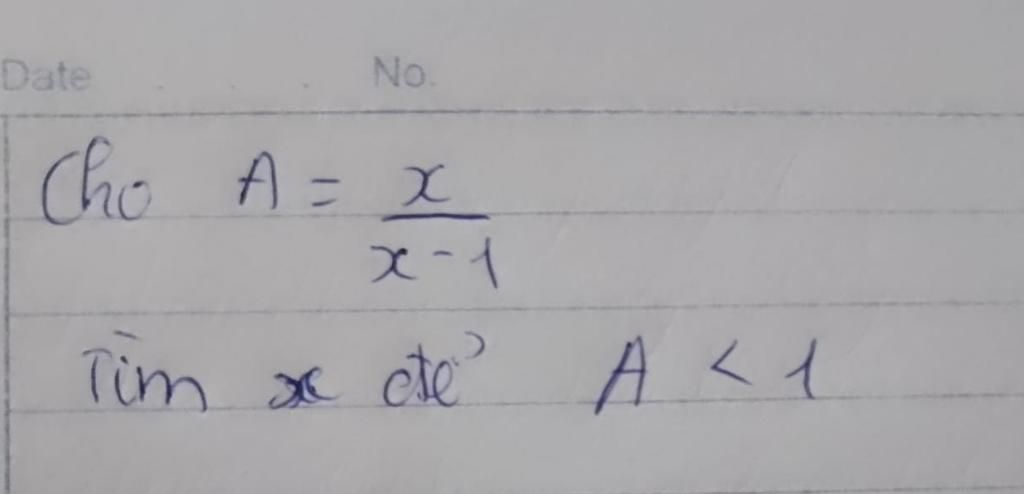 Date No.
Cho A = x / (x - 1)
Tìm x để A < 1